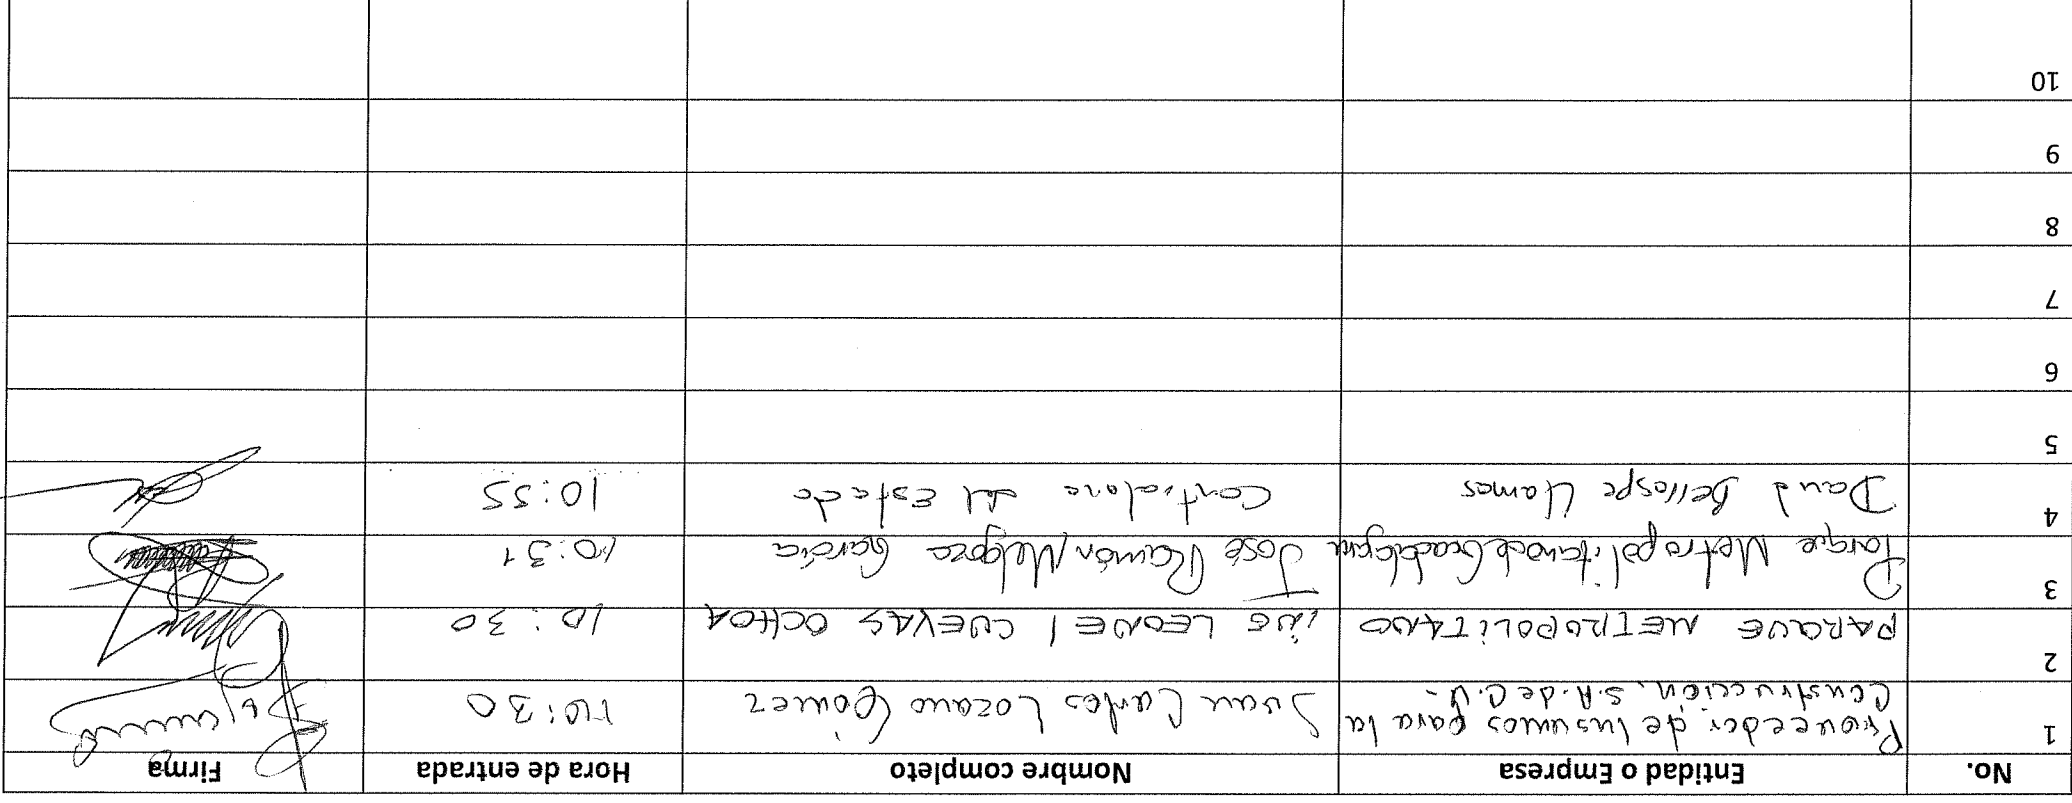 No. Entidad o Empresa Nombre completo Hora de entrada Firma
1 Proveedor de Insumos para la
Construcción, S.A. de C.V. Juan Carlos Lozano Gómez 10:30
2 PARQUE METROPOLITANO ING LEONEL CUEVAS OCHOA 10:30
3 Parque Metropolitano de Guadalajara José Ramón Melgoza García 10:31
4 David Llamas Contralora del Estado 10:55
5
6
7
8
9
10